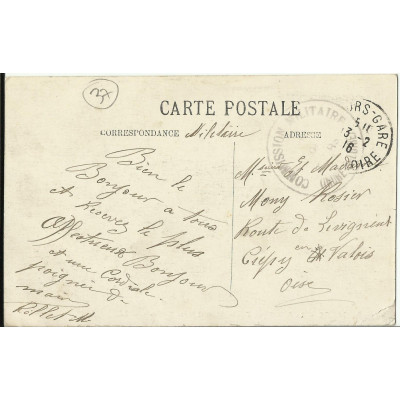 37
CARTE POSTALE
CORRESPONDANCE Militaire ADRESSE
COMMISSION MILITAIRE
RS-GARE
3-2
16
OIRE
Bien le
Bonjour a tous
et Recevez le plus
Affectueux Bonjour
et une Cordiale
poignée d
main
Et Madame
Mony Rosier
Route de
Crépy en Valois
Oise